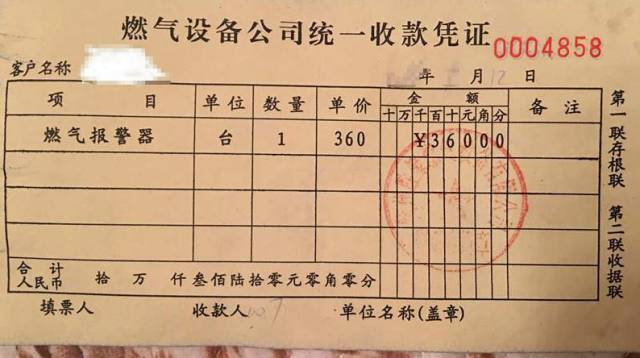 燃气设备公司统一收款凭证 0004858
客户名称 年 月12日
项目 单位 数量 单价 金额 备注
十万千百十元角分
燃气报警器 台 1 360 ¥36000
合计人民币 拾 万 仟叁佰陆拾零元零角零分
填票人 收款人 单位名称(盖章)
第一联存根联 第二联收据联